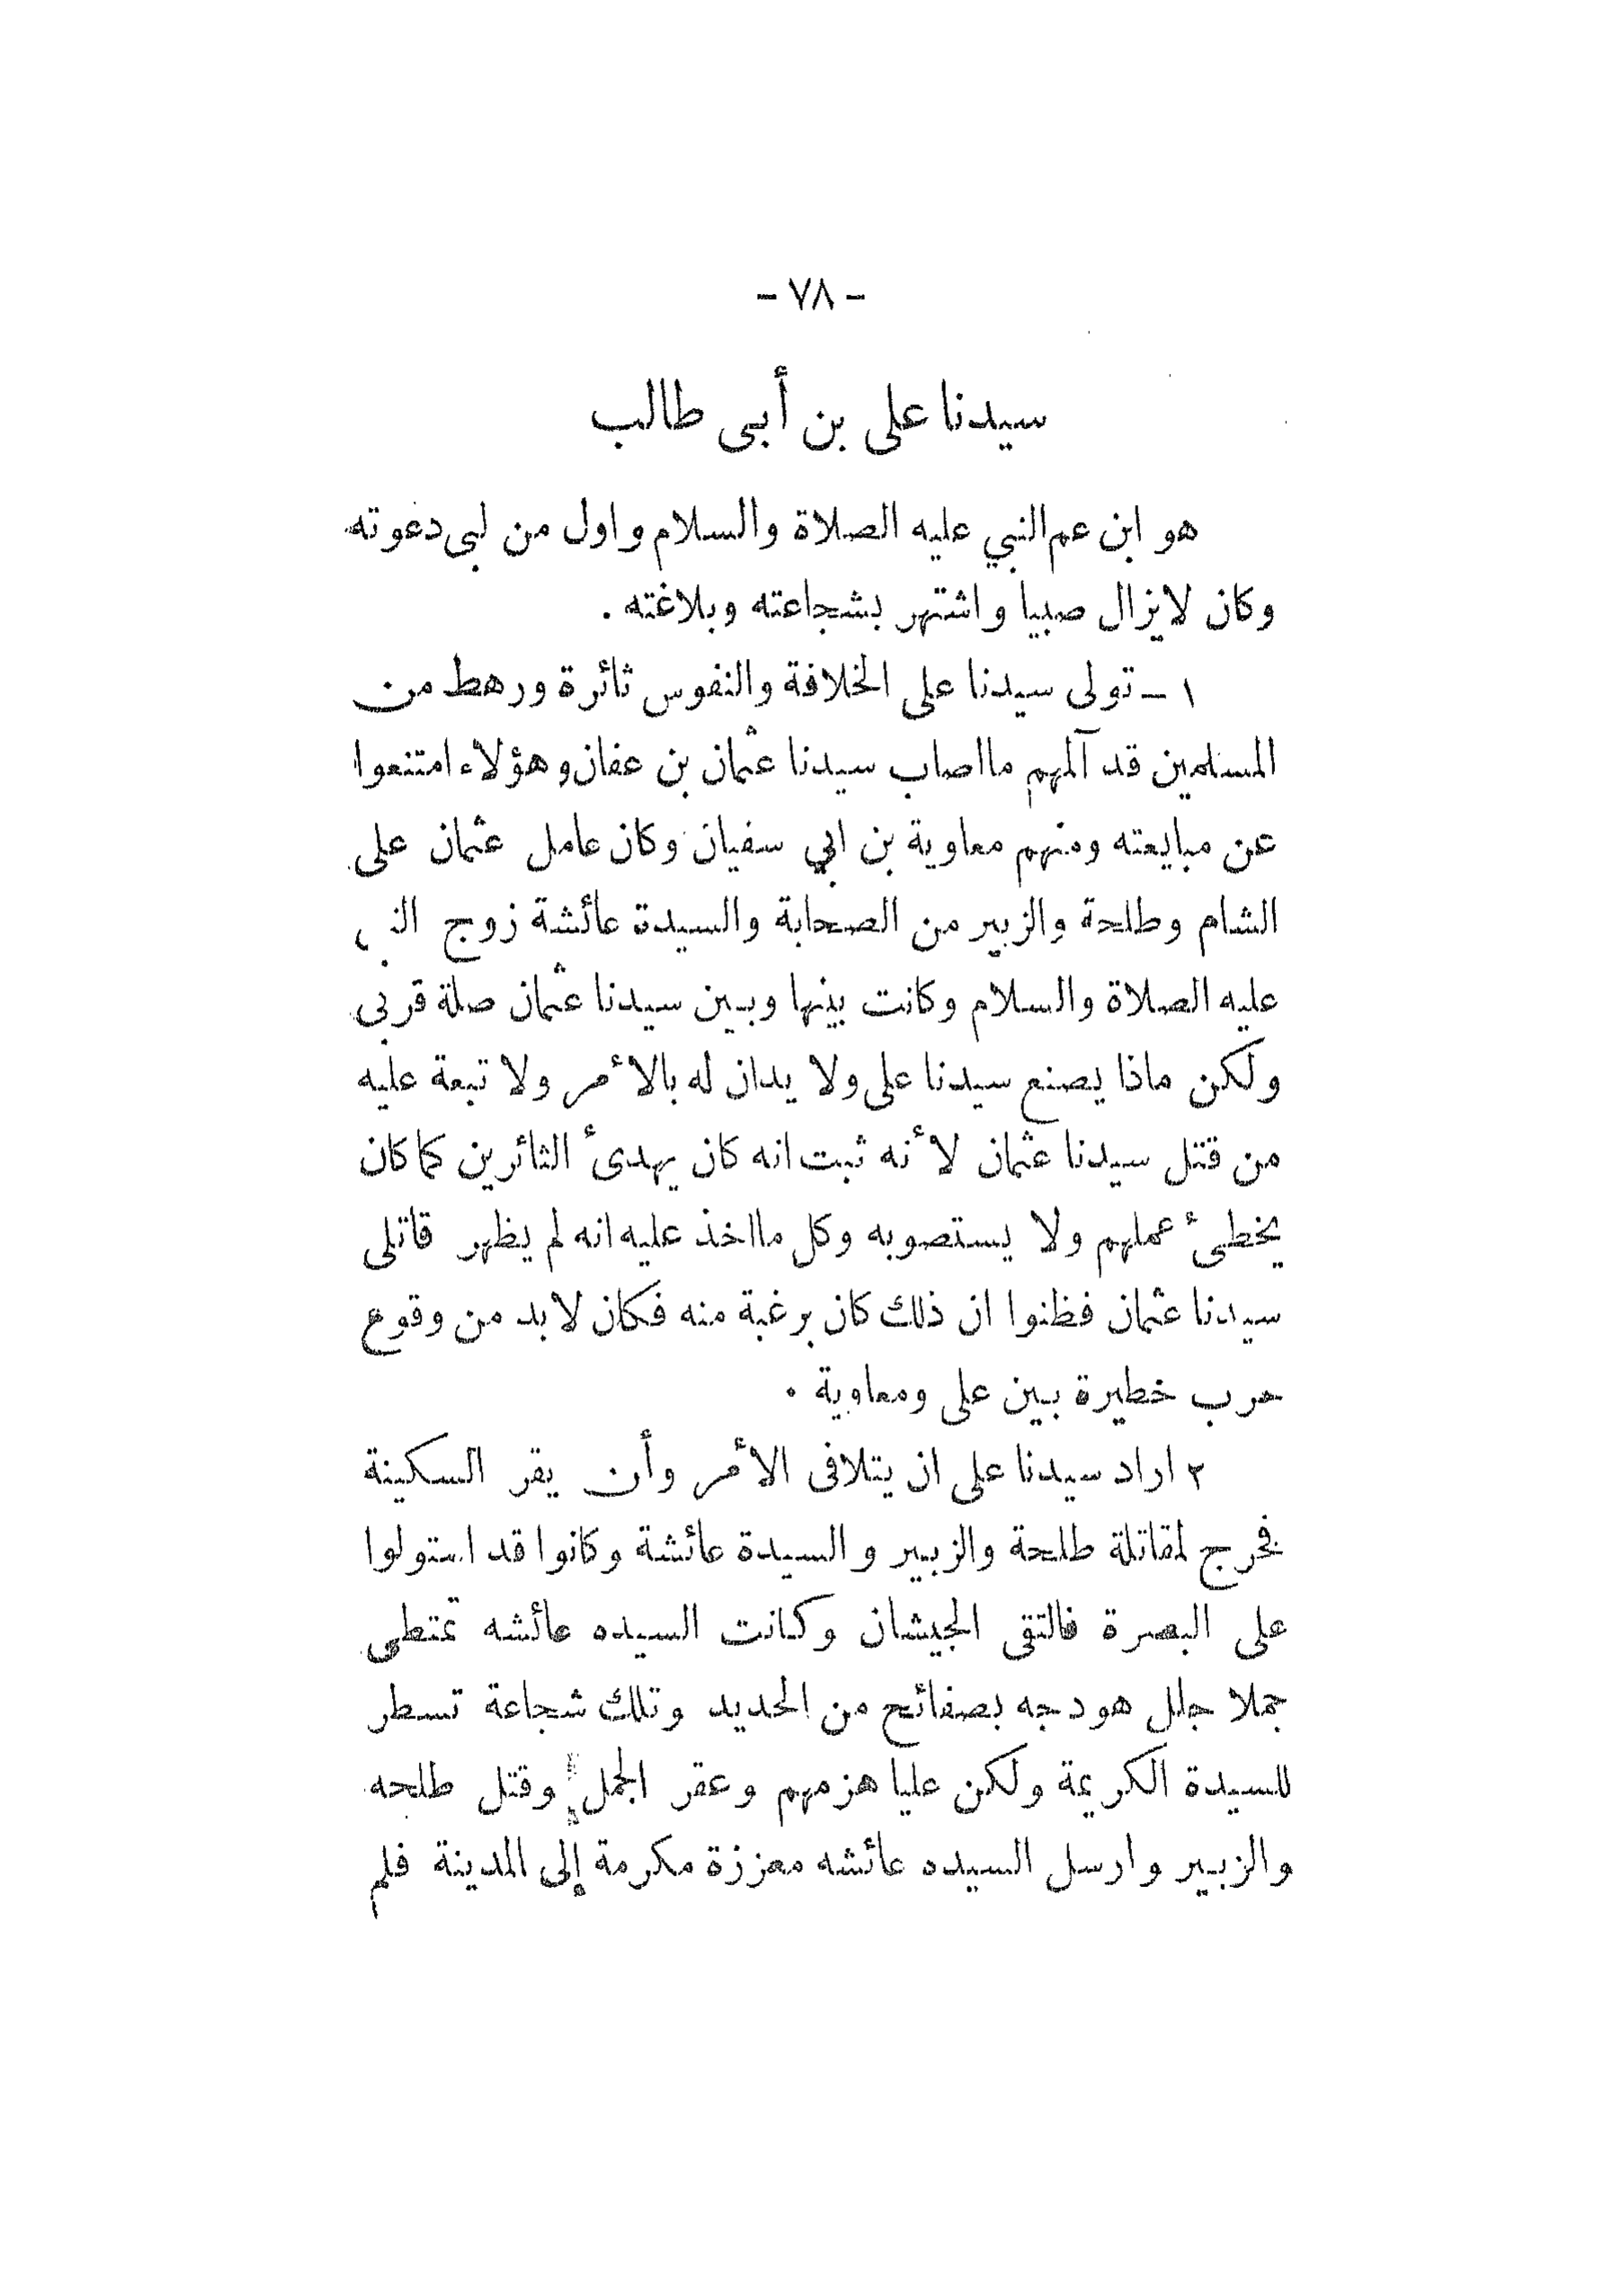 - ٧٨ -
سيدنا على بن أبى طالب
هو ابن عم النبي عليه الصلاة والسلام واول من لبى دعوته
وكان لايزال صبيا واشتهر بشجاعته وبلاغته .
١ - تولى سيدنا على الخلافة والنفوس ثائرة ورهط من
المسلمين قد آلمهم مااصاب سيدنا عثمان بن عفان وهؤلاء امتنعوا
عن مبايعته ومنهم معاوية بن ابي سفيان وكان عامل عثمان على
الشام وطلحة والزبير من الصحابة والسيدة عائشة زوج
عليه الصلاة والسلام وكانت بينها وبين سيدنا عثمان صلة قربى
ولكن ماذا يصنع سيدنا على ولا يدان له بالأمر ولا تبعة عليه
من قتل سيدنا عثمان لأنه ثبت انه كان يهدئ الثائرين كما كان
يخطئ عملهم ولا يستصوبه وكل مااخذ عليه انه لم يظهر قاتلى
سيدنا عثمان فظنوا ان ذلك كان برغبة منه فكان لابد من وقوع
حرب خطيرة بين على ومعاوية .
٢ اراد سيدنا على ان يتلافى الأمر وأن يقر السكينة
فخرج لمقاتلة طلحة والزبير والسيدة عائشة وكانوا قد استولوا
على البصرة فالتقى الجيشان وكانت السيده عائشه تمتطى
جملا جلل هودجه بصفائح من الحديد وتلك شجاعة تسطر
للسيدة الكريمة ولكن عليا هزمهم وعقر الجمل وقتل طلحه
والزبير وارسل السيده عائشه معززة مكرمة إلى المدينة فلم